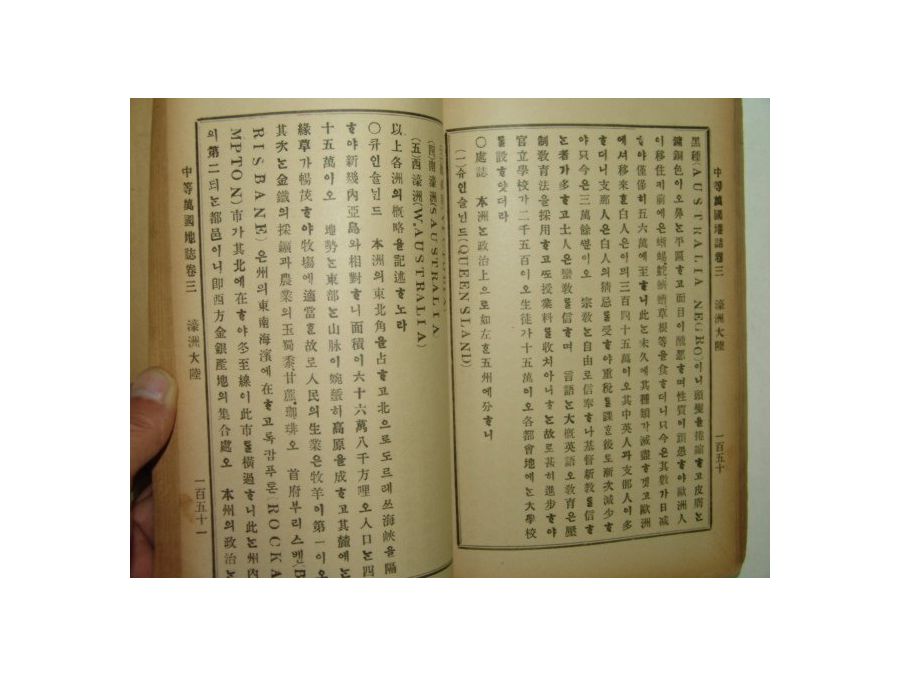 中等萬國地誌卷三 濠洲大陸 一百五十
黑種(AUSTRALIA NEGRO)이니頭髮을捲縮ᄒᆞ고皮膚ᄂᆞᆫ
銅色이오鼻ᄂᆞᆫ平匾ᄒᆞ고面目이醜惡ᄒᆞ며性質이頑愚ᄒᆞ야歐洲人
이移住기前에ᄂᆞᆫ蜥蜴 蠐螬草根等을食ᄒᆞ더니只今은其數가日減
ᄒᆞ야僅僅히五六萬에至ᄒᆞ니此ᄂᆞᆫ未久에其種類가滅盡ᄒᆞ겟고歐洲
에셔移來ᄒᆞᆫ白人은이믜三百四十五萬이오其中英人과支那人이多
ᄒᆞ더니支那人은白人의猜忌ᄅᆞᆯ受ᄒᆞ야重稅ᄅᆞᆯ課ᄒᆞᆫ後도漸次減少ᄒᆞ
야只今은三萬餘ᄲᅮᆫ이오 宗敎ᄂᆞᆫ自由로信奉ᄒᆞ나基督新敎ᄅᆞᆯ信ᄒᆞ
ᄂᆞᆫ者가多ᄒᆞ고土人은蠻敎ᄅᆞᆯ信ᄒᆞ며 言語ᄂᆞᆫ大槪英語오敎育은壓
制敎育法을採用ᄒᆞ고ᄯᅩ授業料ᄅᆞᆯ收치아니ᄒᆞᄂᆞᆫ故로甚히進步ᄒᆞ야
官立學校가二千五百이오生徒가十五萬이오各都會地에ᄂᆞᆫ大學校
ᄅᆞᆯ設ᄒᆞ얏더라
○處誌 本洲ᄂᆞᆫ政治上으로如左ᄒᆞᆫ五州에分ᄒᆞ니
(一)큐인슬닌드(QUEENSLAND)
(四)南濠洲(S.AUSTRALIA)
(五)西濠洲(W.AUSTRALIA)
以上各洲의槪略을記述ᄒᆞ노라
○큐인슬닌드 本洲의東北角을占ᄒᆞ고北으로도르레쓰海峽을隔
ᄒᆞ야新幾內亞島와相對ᄒᆞ니面積이六十六萬八千方哩오人口ᄂᆞᆫ四
十五萬이오 地勢ᄂᆞᆫ東部ᄂᆞᆫ山脉이婉蜒히高原을成ᄒᆞ고其麓에ᄂᆞᆫ
緣草가暢茂ᄒᆞ야牧塲에適當ᄒᆞᆫ故로人民의生業은牧羊이第一이오
其次ᄂᆞᆫ金鐵의採鑛과農業의玉蜀黍、甘蔗、珈琲오 首府부리스벤(B
RISBANE)은州의東南海濱에在ᄒᆞ고독캄푸톤(ROCKA
MPTON)市가其北에在ᄒᆞ야冬至線이此市ᄅᆞᆯ橫過ᄒᆞ니此ᄂᆞᆫ州內
의第二되ᄂᆞᆫ都邑이니即西方金銀產地의集合處오 本州의政治ᄂᆞᆫ
中等萬國地誌卷三 濠洲大陸 一百五十一